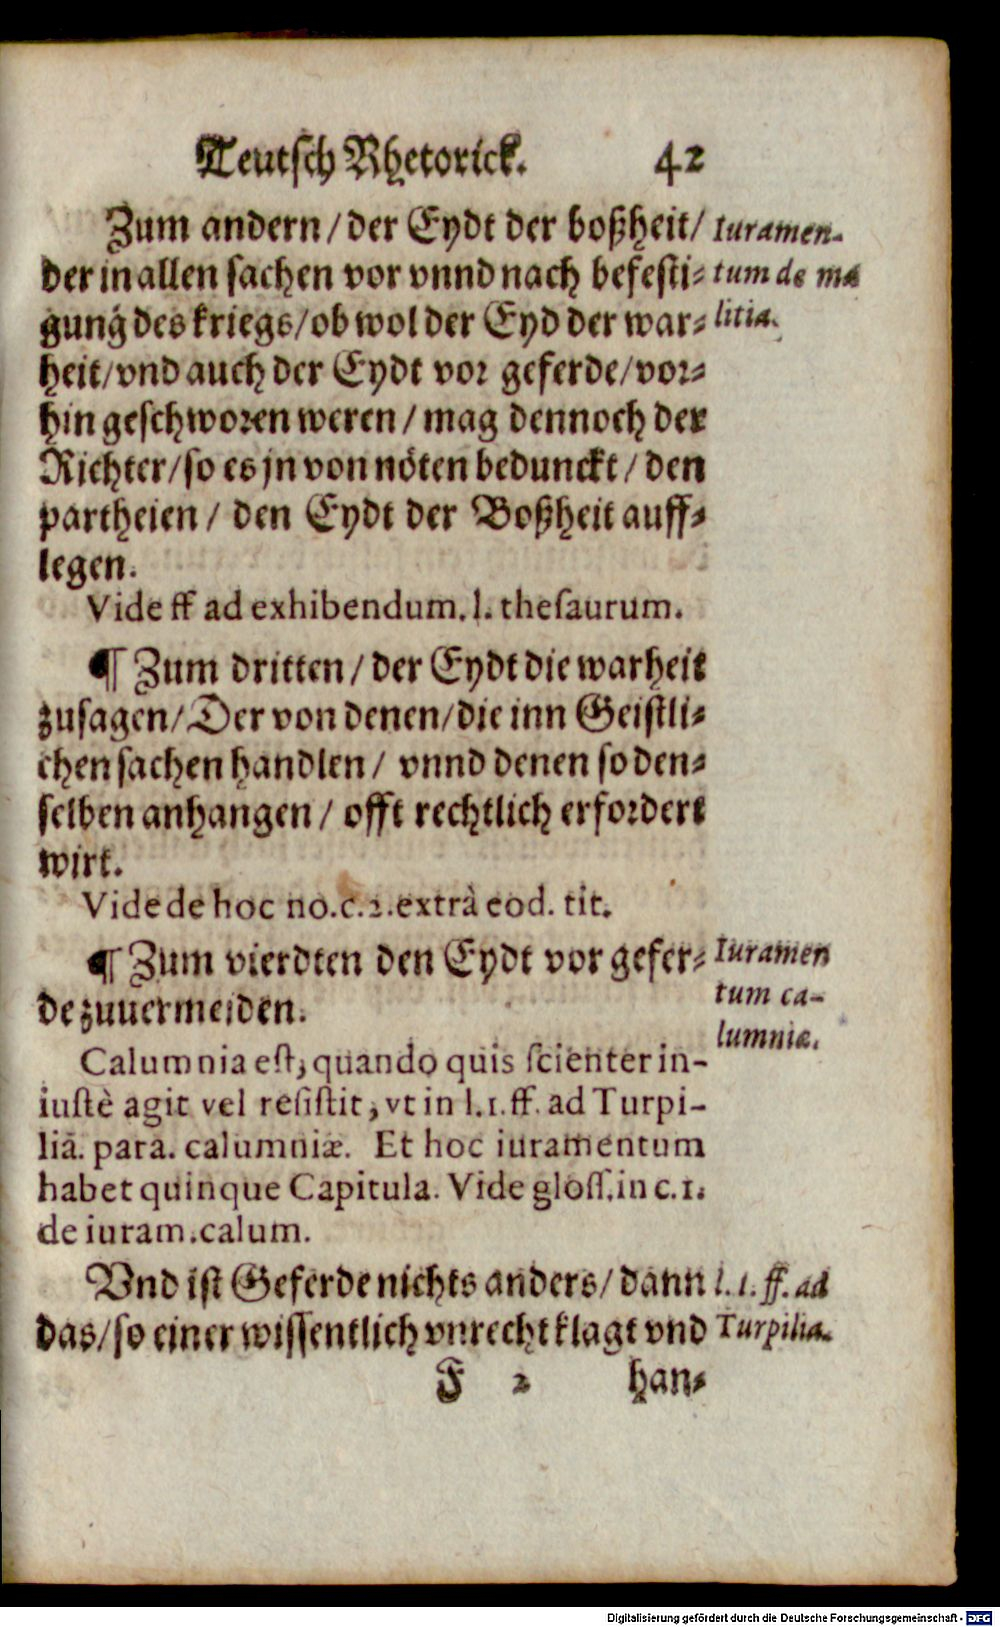 Teutsch Rhetorick. 42
Zum andern / der Eydt der boßheit /
der in allen sachen vor vnnd nach befesti-
gung des kriegs / ob wol der Eyd der war-
heit / vnd auch der Eydt vor geferde / vor-
hin geschworen weren / mag dennoch der
Richter / so es jn von nöten bedunckt / den
partheien / den Eydt der Boßheit auff-
legen.
Iuramen-
tum de ma
litia.
Vide ff ad exhibendum. l. thesaurum.
¶ Zum dritten / der Eydt die warheit
zusagen / Der von denen / die inn Geistli-
chen sachen handlen / vnnd denen so den-
selben anhangen / offt rechtlich erfordert
wirt.
Vide de hoc no. c. 2. extrà eod. tit.
¶ Zum vierdten den Eydt vor gefer-
de zuuermeiden.
Iuramen
tum ca-
lumniæ.
Calumnia est, quando quis scienter in-
iustè agit vel resistit, vt in l. 1. ff. ad Turpi-
liā. para. calumniæ. Et hoc iuramentum
habet quinque Capitula. Vide gloss. in c. 1.
de iuram. calum.
Vnd ist Geferde nichts anders / dann
das / so einer wissentlich vnrecht klagt vnd
l. 1. ff. ad
Turpilia.
F 2 han-
Digitalisierung gefördert durch die Deutsche Forschungsgemeinschaft - DFG